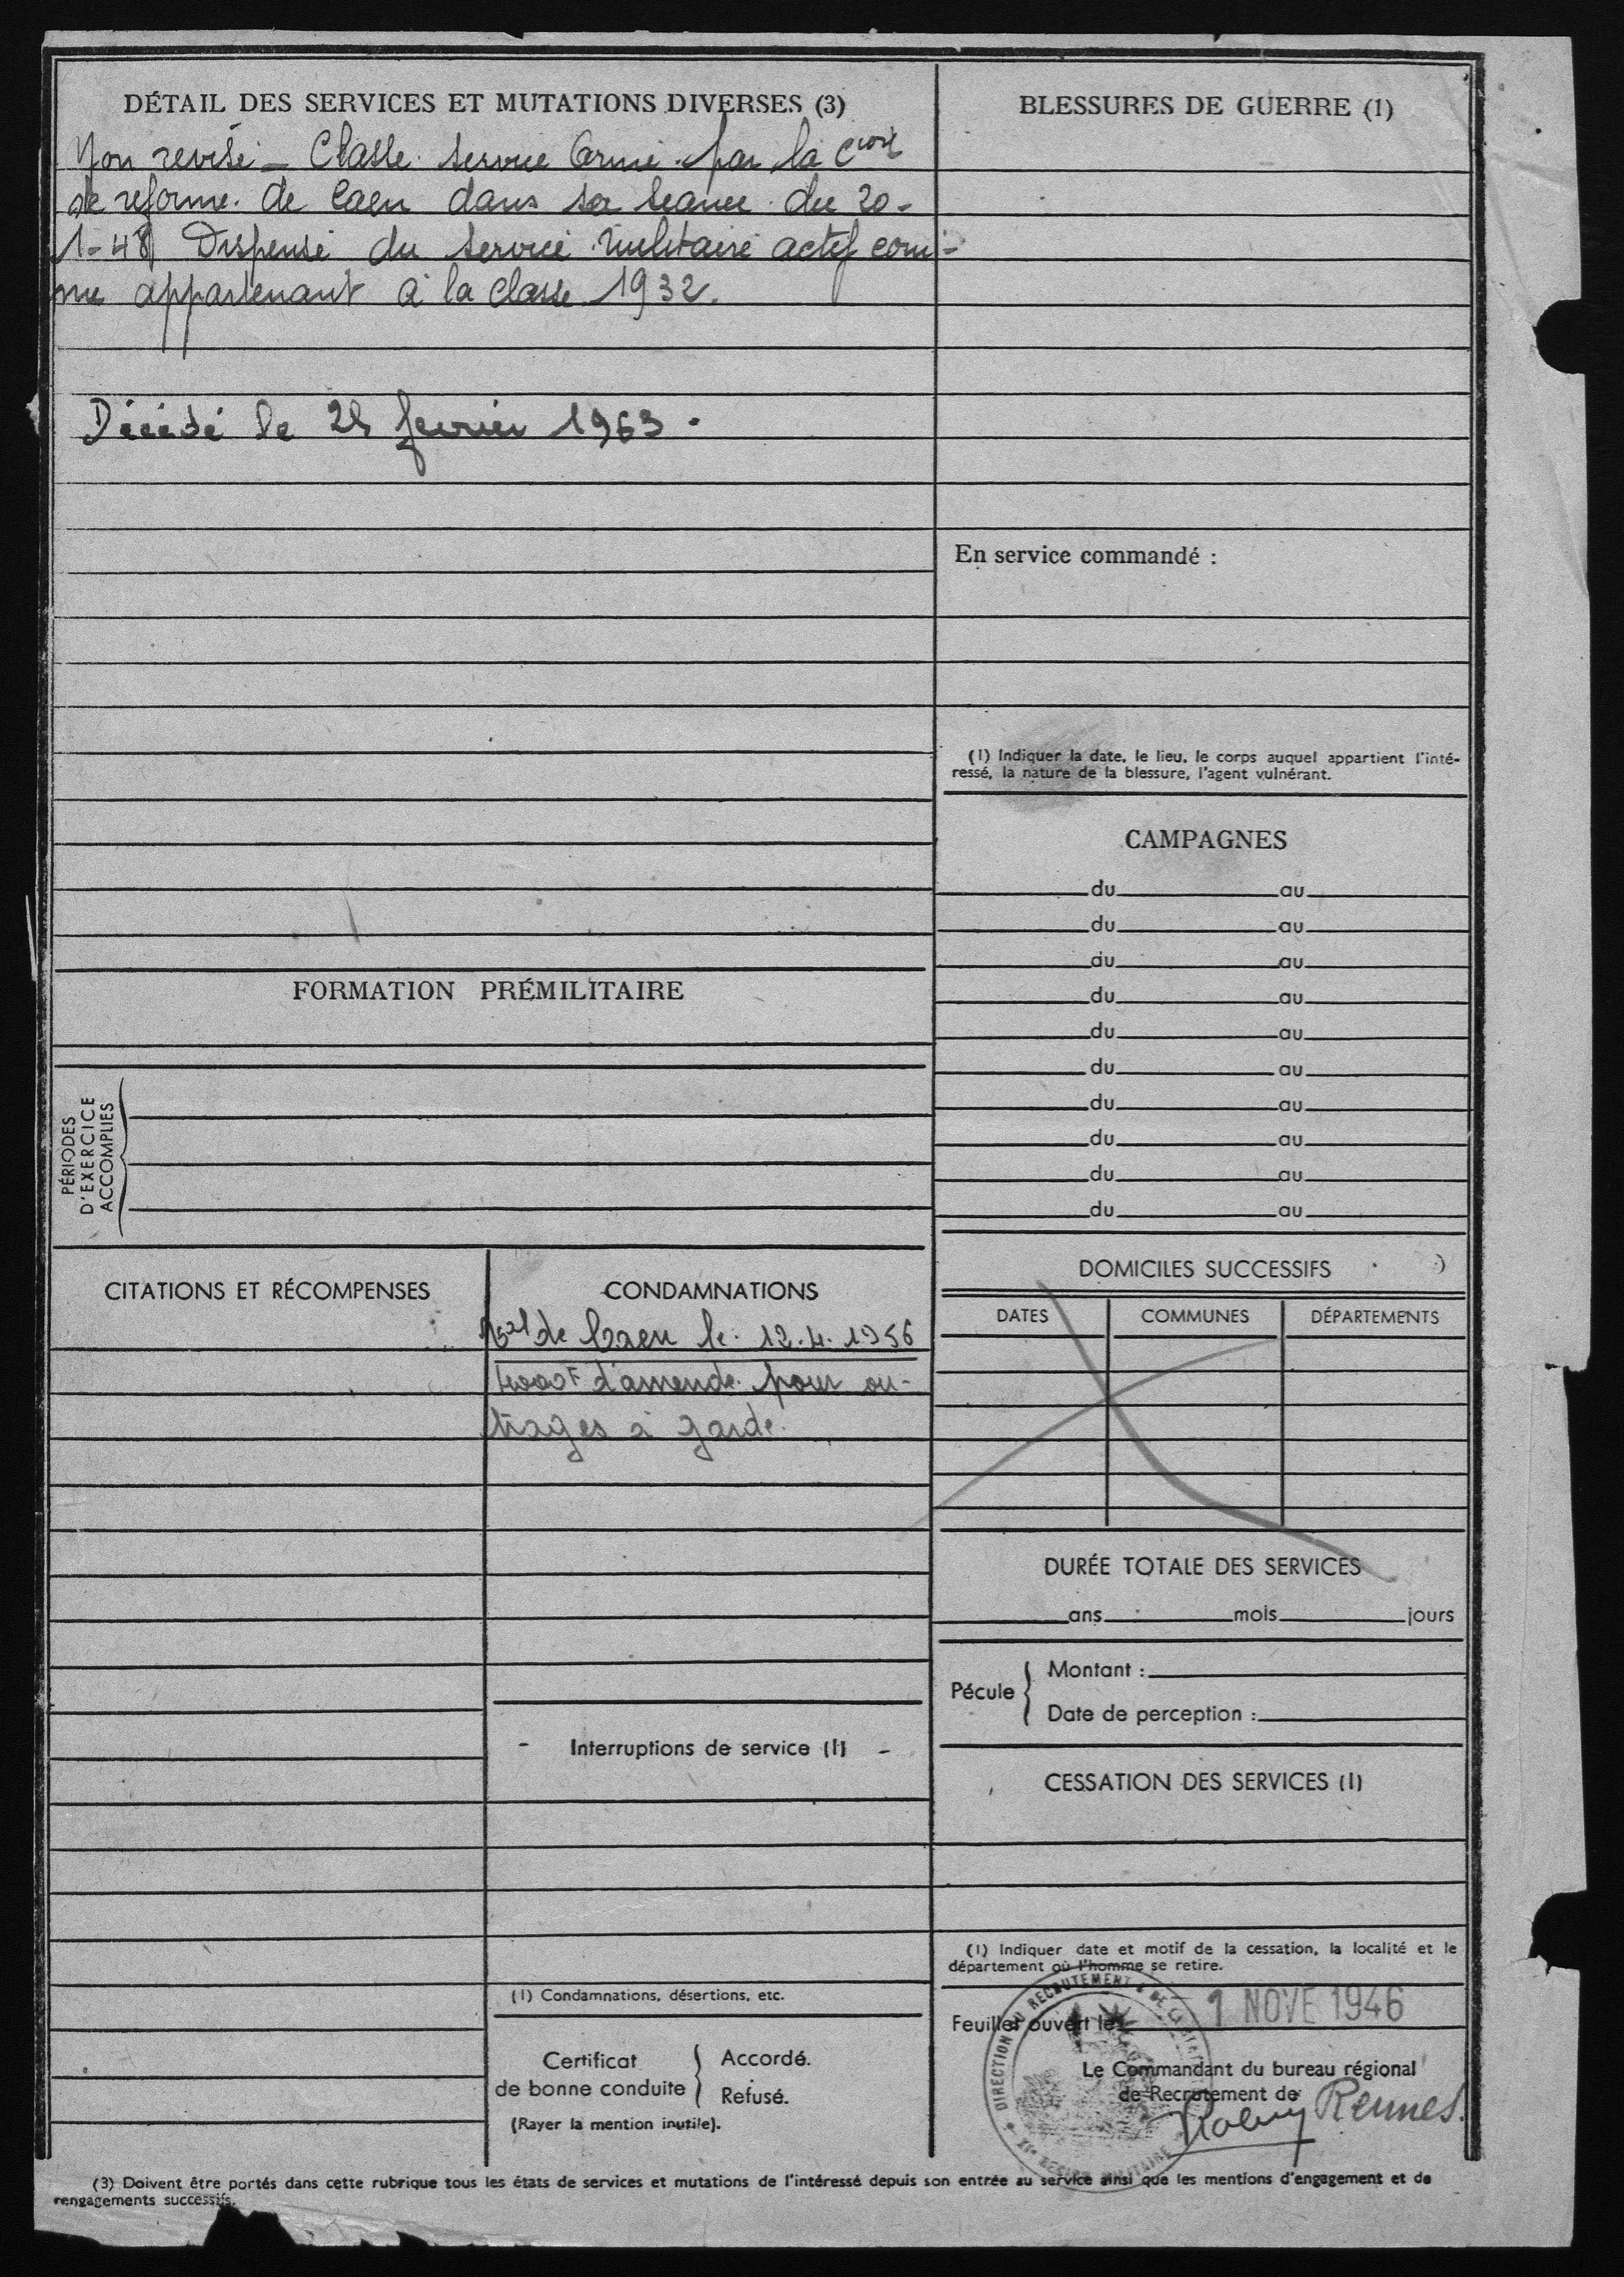 DÉTAIL DES SERVICES ET MUTATIONS DIVERSES (3)
Non revisé - Classé service armé par la Cion
de reforme de Caen dans sa seance du 20-
1-48 Dispensé du service militaire actif com-
me appartenant à la classe 1932.
Décédé le février 1963.
FORMATION PRÉMILITAIRE
PÉRIODES
D'EXERCICE
ACCOMPLIES
CITATIONS ET RÉCOMPENSES
CONDAMNATIONS
de Caen le 12.4.1956
d'amende pour ou-
trages à garde.
- Interruptions de service (1) -
(1) Condamnations, désertions, etc.
Certificat
de bonne conduite
Accordé.
Refusé.
(Rayer la mention inutile).
BLESSURES DE GUERRE (1)
En service commandé :
(1) Indiquer la date, le lieu, le corps auquel appartient l'inté-
ressé, la nature de la blessure, l'agent vulnérant.
CAMPAGNES
du au
du au
du au
du au
du au
du au
du au
du au
du au
du au
DOMICILES SUCCESSIFS
DATES COMMUNES DÉPARTEMENTS
DURÉE TOTALE DES SERVICES
ans mois jours
Pécule
Montant :
Date de perception :
CESSATION DES SERVICES (1)
(1) Indiquer date et motif de la cessation, la localité et le
département où l'homme se retire.
Feuillet ouvert le 1 NOVE 1946
DIRECTION DU RECRUTEMENT
Le Commandant du bureau régional
de Recrutement de Rennes.
(3) Doivent être portés dans cette rubrique tous les états de services et mutations de l'intéressé depuis son entrée au service ainsi que les mentions d'engagement et de
rengagements successifs.